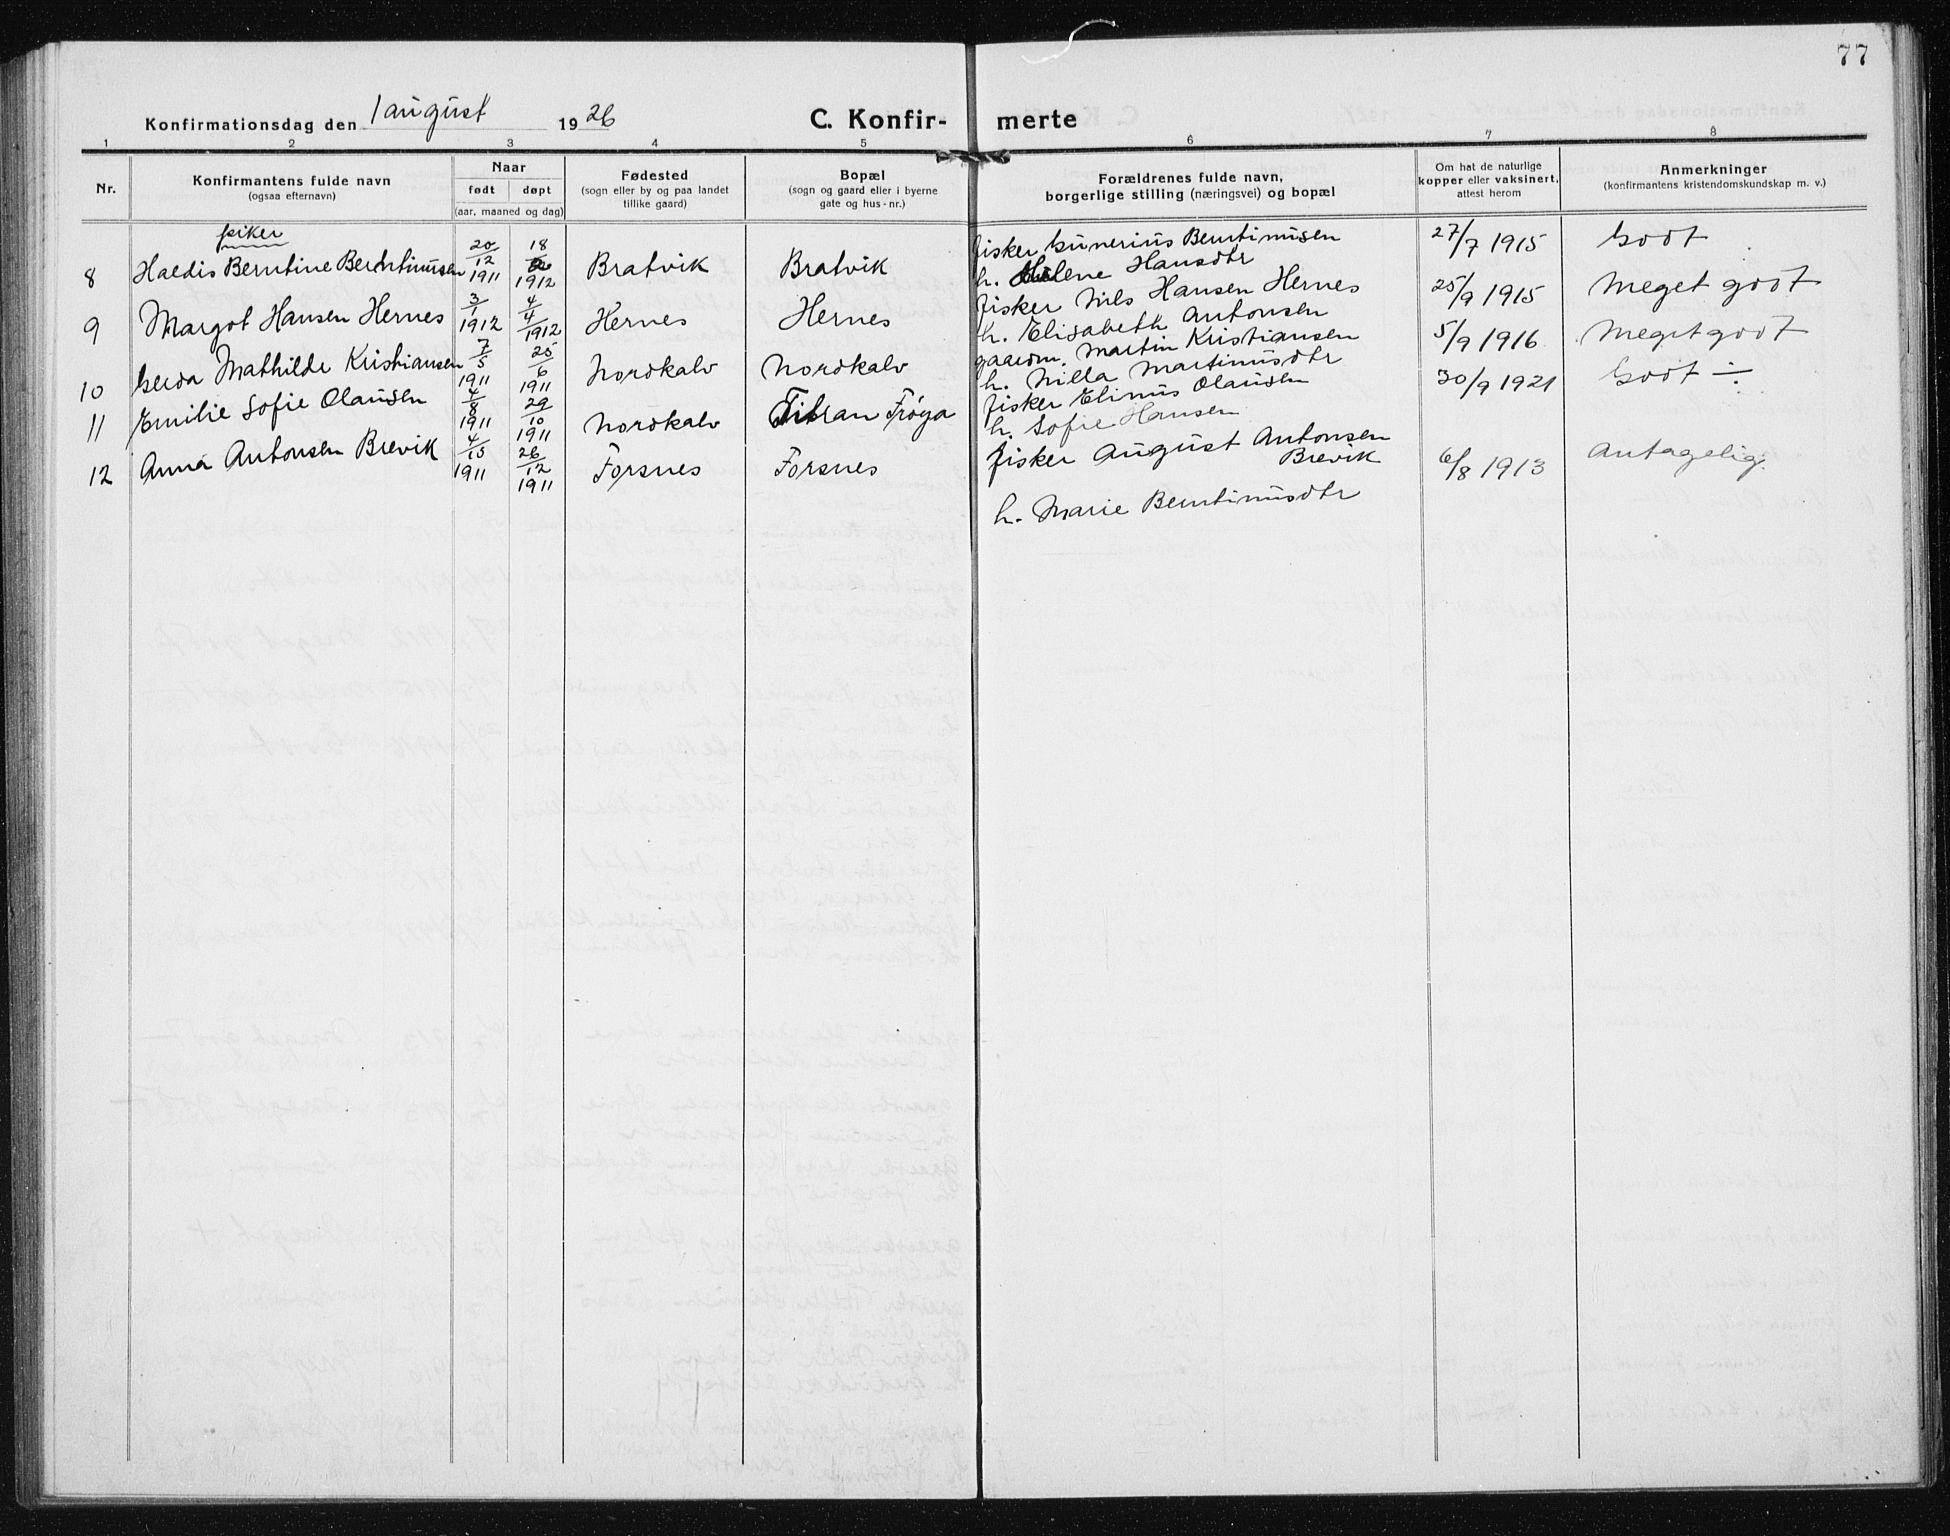 77
Konfirmationsdag den 1 august 1926 C. Konfir- merte
1 2 3 4 5 6 7 8
Nr. Konfirmantens fulde navn (ogsaa efternavn) Naar født døpt (aar, maaned og dag) Fødested (sogn eller by og paa landet tillike gaard) Bopæl (sogn og gaard eller i byerne gate og hus-nr.) Forældrenes fulde navn, borgerlige stilling (næringsvei) og bopæl Om hat de naturlige kopper eller vaksinert, attest herom Anmerkninger (konfirmantens kristendomskundskap m. v.)
piker
8 Haldis Berntine Berntinusen 20/12 1911 18 1912 Bratvik Bratvik fisker Gunerius Berntinusen 27/7 1915 Godt
h. Helene Hansdtr
9 Margot Hansen Hernes 3/1 1912 4/4 1912 Hernes Hernes fisker Nils Hansen Hernes 25/9 1915 Meget godt
h. Elisabeth Antonsen
10 Gerda Mathilde Kristiansen 7/5 1911 25/6 1911 Nordkalv Nordkalv gaardm. Martin Kristiansen 5/9 1916 Meget godt
h. Nilla Martinusdtr
11 Emilie Sofie Olausen 4/8 1911 29/10 1911 Nordkalv Titran Frøya fisker Elinus Olausen 30/9 1921 Godt ÷
h. Sofie Hansen
12 Anna Antonsen Brevik 4/ 1911 26/12 1911 Forsnes Forsnes fisker August Antonsen 6/8 1913 Antagelig.
Brevik
h. Marie Berntinusdtr